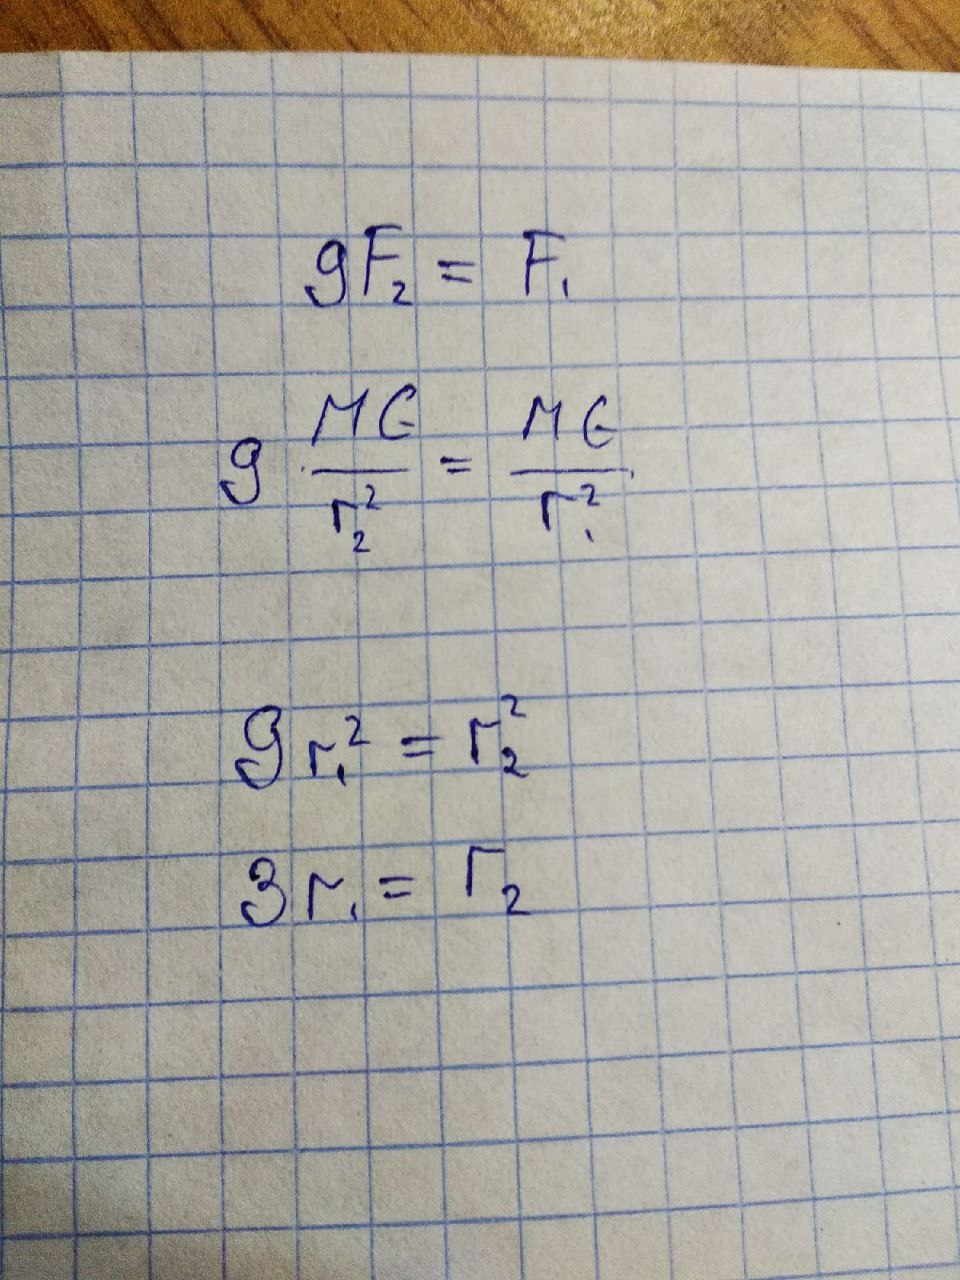 9F₂ = F₁
9 · MG/r₂² = MG/r₁²
9r₁² = r₂²
3r₁ = r₂